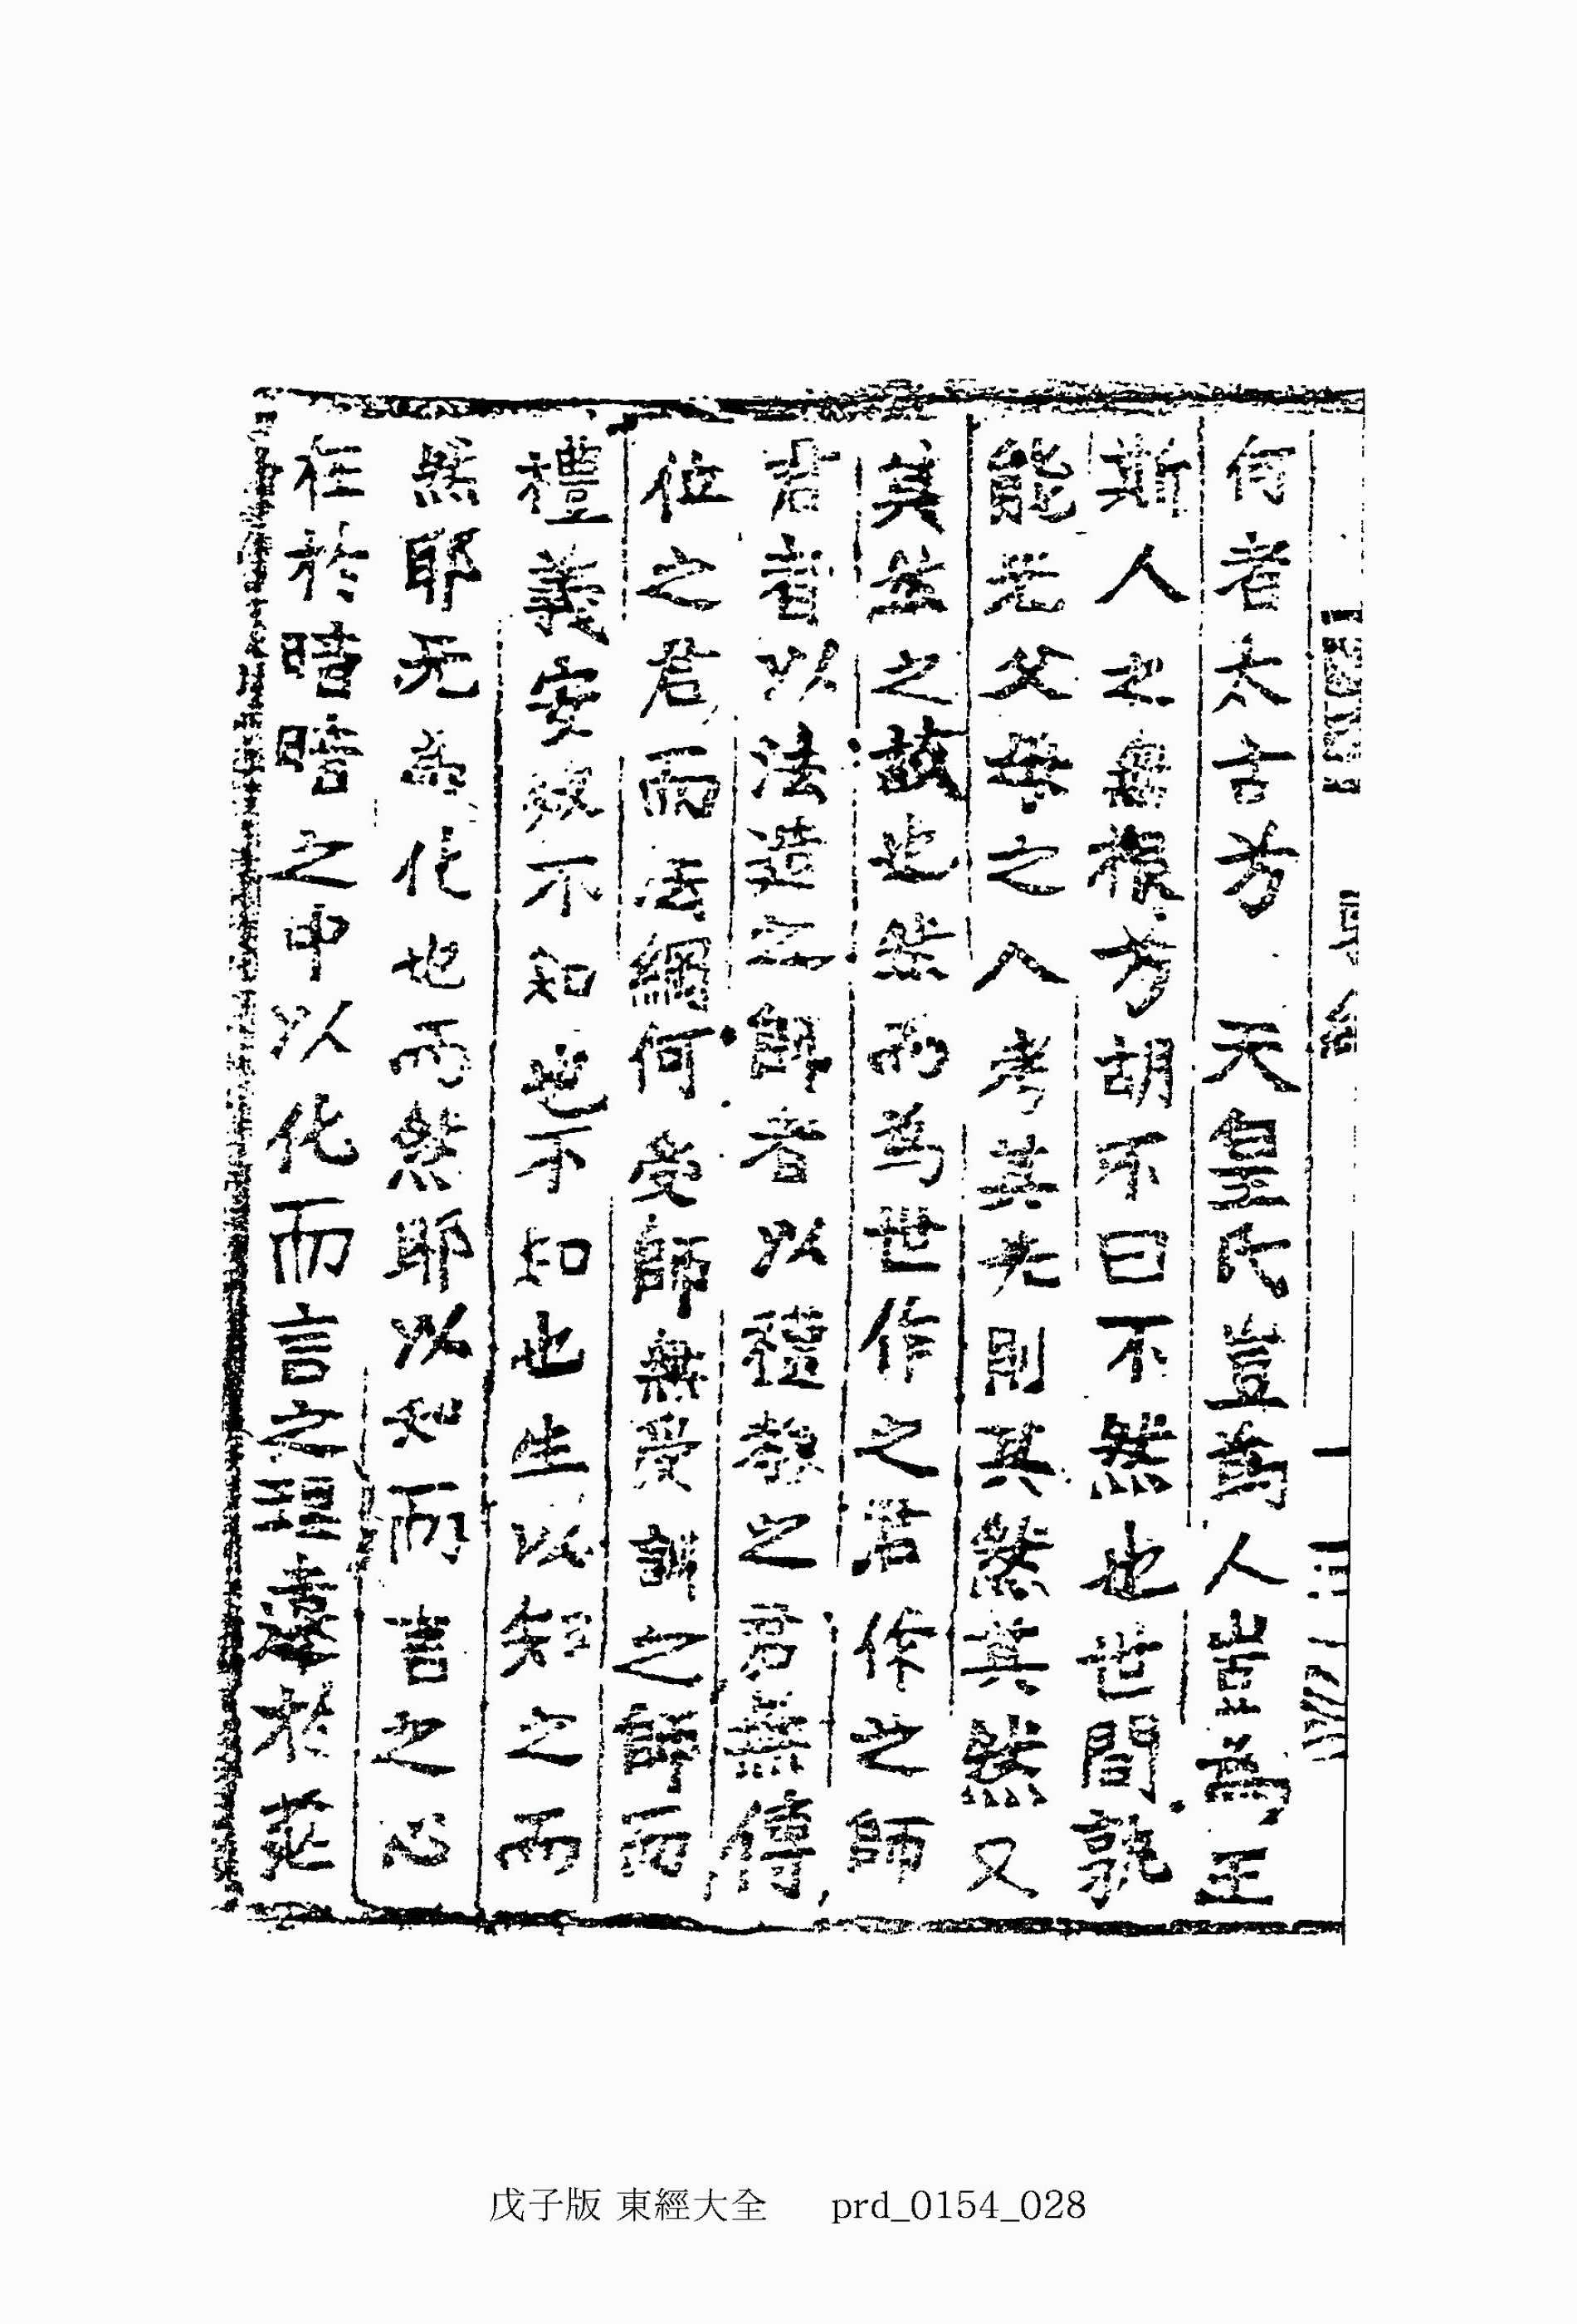 何者太古兮　天皇氏豈爲人豈爲王
斯人之無根兮胡不曰不然也世間孰
能无父母之人考其先則其然其然又
其玆之故也然而爲世作之君作之師
君者以法造之師者以禮敎之君無傳
位之君而法綱何受師無受訓之師而
禮義安效不知也不知也生以知之而
然耶无爲化也而然耶以知而言之心
在於暗暗之中以化而言之理遠於茫
戊子版 東經大全 prd_0154_028